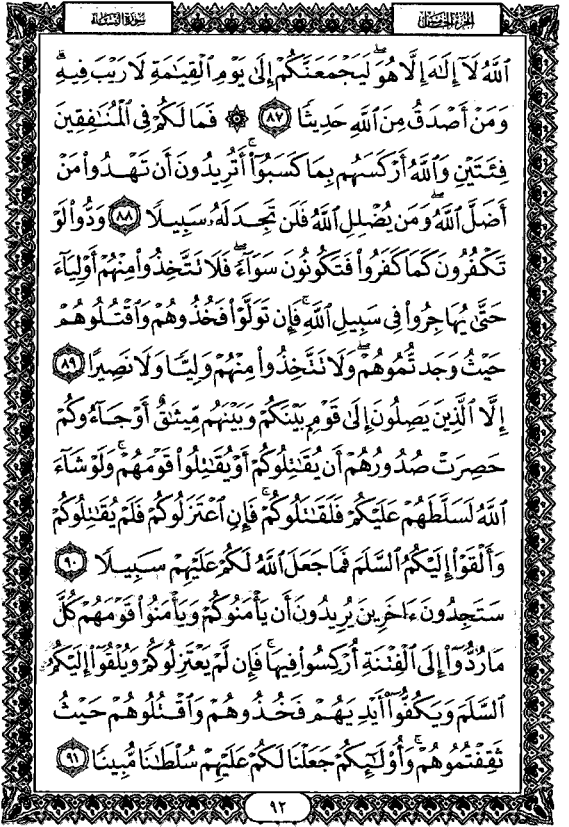 الجزء الخامس
سورة النساء
ٱللَّهُ لَآ إِلَٰهَ إِلَّا هُوَۚ لَيَجْمَعَنَّكُمْ إِلَىٰ يَوْمِ ٱلْقِيَٰمَةِ لَا رَيْبَ فِيهِۗ
وَمَنْ أَصْدَقُ مِنَ ٱللَّهِ حَدِيثًا ٨٧ ۞ فَمَا لَكُمْ فِى ٱلْمُنَٰفِقِينَ
فِئَتَيْنِ وَٱللَّهُ أَرْكَسَهُم بِمَا كَسَبُوٓا۟ۚ أَتُرِيدُونَ أَن تَهْدُوا۟ مَنْ
أَضَلَّ ٱللَّهُۖ وَمَن يُضْلِلِ ٱللَّهُ فَلَن تَجِدَ لَهُۥ سَبِيلًا ٨٨ وَدُّوا۟ لَوْ
تَكْفُرُونَ كَمَا كَفَرُوا۟ فَتَكُونُونَ سَوَآءًۖ فَلَا تَتَّخِذُوا۟ مِنْهُمْ أَوْلِيَآءَ
حَتَّىٰ يُهَاجِرُوا۟ فِى سَبِيلِ ٱللَّهِۚ فَإِن تَوَلَّوْا۟ فَخُذُوهُمْ وَٱقْتُلُوهُمْ
حَيْثُ وَجَدتُّمُوهُمْۖ وَلَا تَتَّخِذُوا۟ مِنْهُمْ وَلِيًّا وَلَا نَصِيرًا ٨٩
إِلَّا ٱلَّذِينَ يَصِلُونَ إِلَىٰ قَوْمٍۭ بَيْنَكُمْ وَبَيْنَهُم مِّيثَٰقٌ أَوْ جَآءُوكُمْ
حَصِرَتْ صُدُورُهُمْ أَن يُقَٰتِلُوكُمْ أَوْ يُقَٰتِلُوا۟ قَوْمَهُمْۚ وَلَوْ شَآءَ
ٱللَّهُ لَسَلَّطَهُمْ عَلَيْكُمْ فَلَقَٰتَلُوكُمْۚ فَإِنِ ٱعْتَزَلُوكُمْ فَلَمْ يُقَٰتِلُوكُمْ
وَأَلْقَوْا۟ إِلَيْكُمُ ٱلسَّلَمَ فَمَا جَعَلَ ٱللَّهُ لَكُمْ عَلَيْهِمْ سَبِيلًا ٩٠
سَتَجِدُونَ ءَاخَرِينَ يُرِيدُونَ أَن يَأْمَنُوكُمْ وَيَأْمَنُوا۟ قَوْمَهُمْ كُلَّ
مَا رُدُّوٓا۟ إِلَى ٱلْفِتْنَةِ أُرْكِسُوا۟ فِيهَاۚ فَإِن لَّمْ يَعْتَزِلُوكُمْ وَيُلْقُوٓا۟ إِلَيْكُمُ
ٱلسَّلَمَ وَيَكُفُّوٓا۟ أَيْدِيَهُمْ فَخُذُوهُمْ وَٱقْتُلُوهُمْ حَيْثُ
ثَقِفْتُمُوهُمْۚ وَأُو۟لَٰٓئِكُمْ جَعَلْنَا لَكُمْ عَلَيْهِمْ سُلْطَٰنًا مُّبِينًا ٩١
٩٢